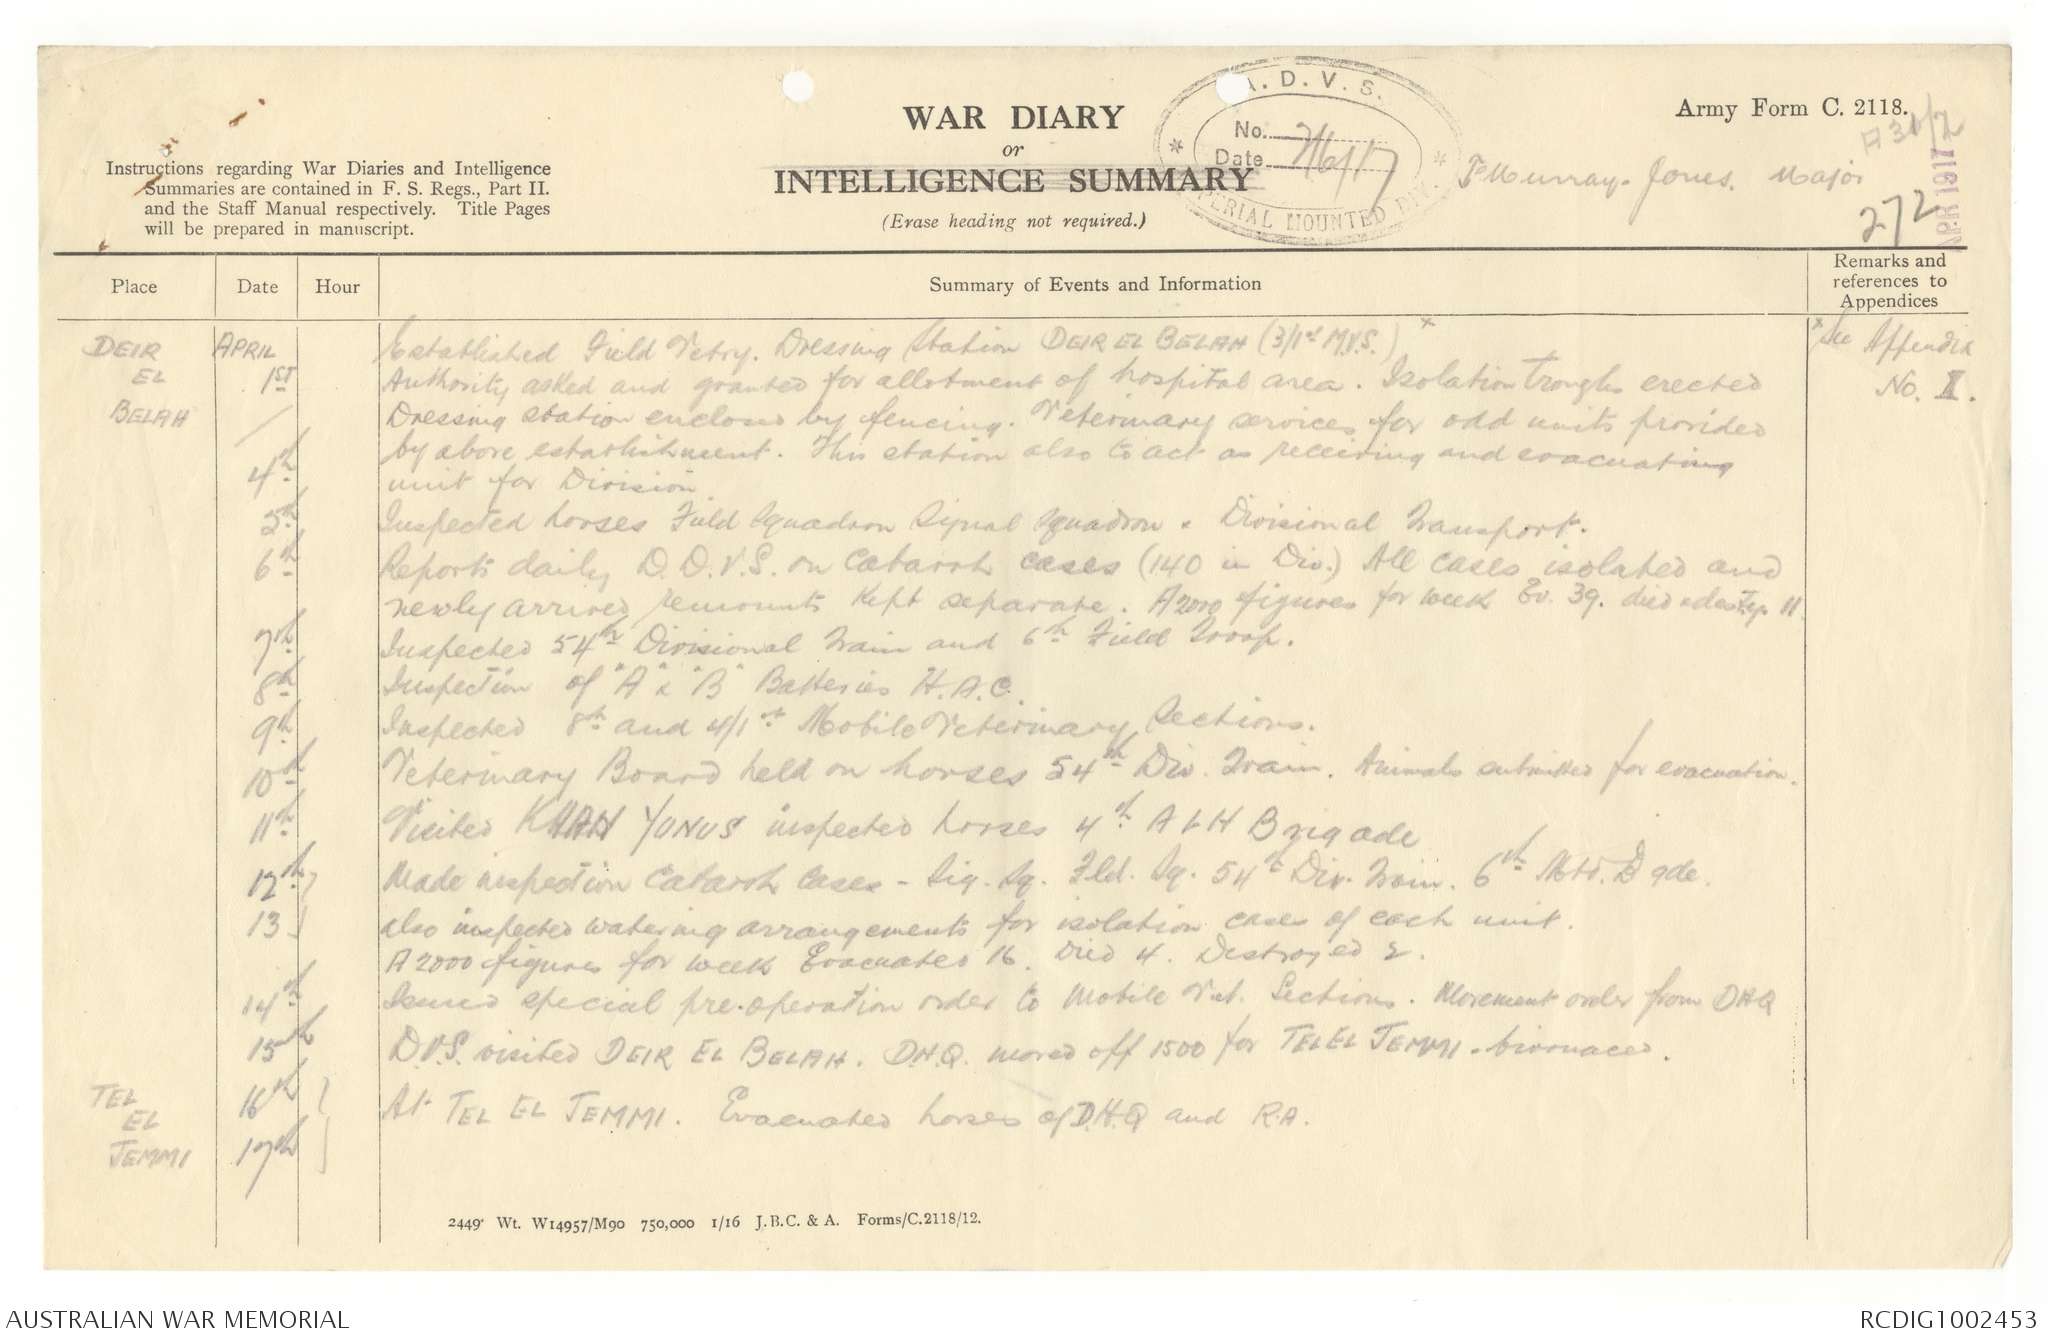 Army Form C. 2118.
WAR DIARY
or
INTELLIGENCE SUMMARY
(Erase heading not required.)
Instructions regarding War Diaries and Intelligence
Summaries are contained in F. S. Regs., Part II.
and the Staff Manual respectively. Title Pages
will be prepared in manuscript.
A.D.V.S.
No.
Date
IMPERIAL MOUNTED DIV.
F Murray-Jones. Major
272
APR 1917
Place Date Hour Summary of Events and Information Remarks and references to Appendices
DEIR EL BELAH APRIL 1ST Established Field Vetry. Dressing Station DEIR EL BELAH (3/1st M.V.S.) x
x See Appendix No. I.
Authority asked and granted for allotment of hospital area. Isolation Troughs erected
Dressing station enclosed by fencing. Veterinary services for odd units provided
4th by above establishment. This station also to act as receiving and evacuating
unit for Division
5th Inspected horses Field Squadron Signal Squadron & Divisional Transport.
6th Reports daily D.D.V.S. on Catarrh cases (140 in Div.) All cases isolated and
newly arrived remounts kept separate. A2000 figures for week Ev. 39. died & destyd 11
7th Inspected 54th Divisional Train and 6th Field Troop.
8th Inspection of "A" & "B" Batteries H.A.C.
9th Inspected 8th and 4/1st Mobile Veterinary Sections.
10th Veterinary Board held on horses 54th Div. Train. Animals submitted for evacuation.
11th Visited KHAN YUNUS inspected horses 4th A L H Brigade
12th Made inspection Catarrh Cases - Sig. Sq. Fld. Sq. 54th Div. Train. 6th Mtd. Bgde.
13 also inspected watering arrangements for isolation cases of each unit.
A2000 figures for week Evacuated 16. Died 4. Destroyed 2.
14th Issued special pre-operation order to Mobile Vet. Sections. Movement order from DHQ
15th D.V.S. visited DEIR EL BELAH. D.H.Q. moved off 1500 for TEL EL JEMMI - bivouaced.
TEL EL JEMMI 16th 17th At TEL EL JEMMI. Evacuated horses of D.H.Q and R.A.
2449 Wt. W14957/M90 750,000 1/16 J.B.C. & A. Forms/C.2118/12.
AUSTRALIAN WAR MEMORIAL
RCDIG1002453